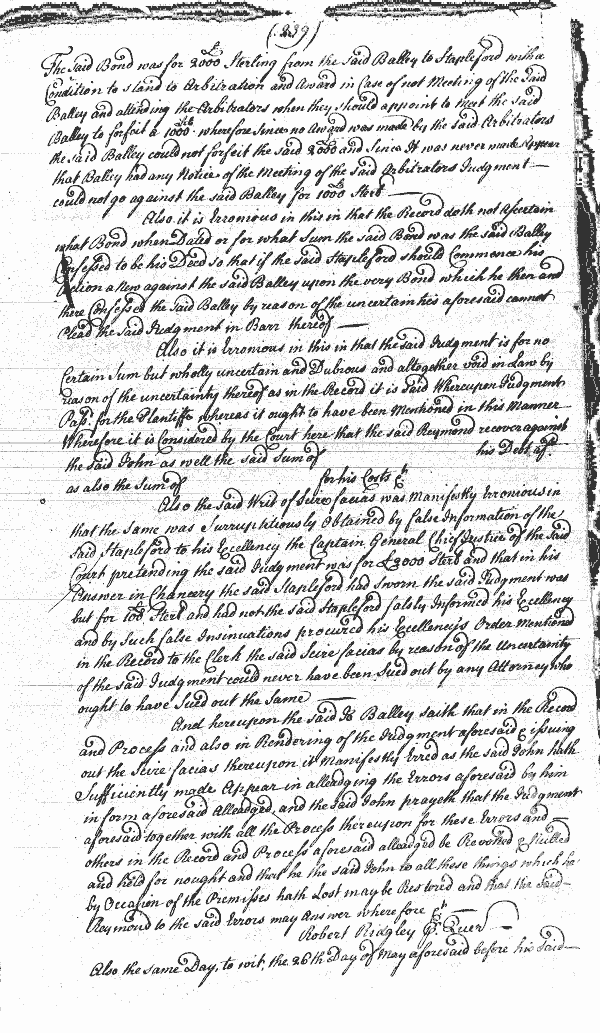 (239)
The Said Bond was for 2000 lb Sterling from the Said Balley to Stapleford with a
Condition to stand to Arbitration and Award in Case of not Meeting of the Said
Balley and attending the Arbitrators when they should appoint to meet the Said
Balley to forfeit a 1000 lb wherefore since no Award was made by the said Arbitrators
the said Balley could not forfeit the said 2000 and Since It was never made Appear
that Balley had any Notice of the Meeting of the said Arbitrators Judgment
could not go against the said Balley for 1000 lb Sterl
Also it is Erronious in this in that the Record doth not Ascertain
what Bond when Dated or for what Sum the said Bond was the said Balley
Confessed to be his Deed so that if the said Stapleford should Commence his
Action a New against the said Balley upon the very Bond which he then and
there Confessed the said Balley by reason of the uncertainties aforesaid cannot
Plead the Said Judgment in Barr thereof
Also it is Erronious in this in that the said Judgment is for no
Certain Sum but wholly uncertain and Dubious and altogether void in Law by
reason of the uncertainty thereof as in the Record it is Said Whereupon Judgment
Pass: for the Plantiffe whereas it ought to have been Mentioned in this Manner
Wherefore it is Considered by the Court here that the said Reymond recover against
the said John as well the said Sum of his Debt afd.
as also the Sum of for his Costs &c
Also the said Writ of Scire facias was Manifestly Erronious in
that the same was Surruptitiously Obtained by false Information of the
Said Stapleford to his Excellency the Captain General Chief Justice of the Said
Court pretending the said Judgment was for £2000 Sterl and that in his
Answer in Chancery the said Stapleford had sworn the said Judgment was
but for 100 lb Sterl and had not the said Stapleford falsly Informed his Excellency
and by Such false Insinuations procured his Excellencys Order Mentioned
in the Record to the Clerk the said Scire facias by reason of the Uncertainty
of the said Judgment could never have been Sued out by any Attorney who
ought to have Sued out the Same
And hereupon the said Jo Balley saith that in the Record
and Process and also in Rendering of the Judgment aforesaid & issuing
out the Scire facias thereupon it Manifestly Erred as the said John hath
Sufficiently made Appear in alleadging the Errors aforesaid by him
in form aforesaid Alleadged and the Said John prayeth that the Judgment
aforesaid together with all the Process thereupon for these Errors and
others in the Record and Process aforesaid alledged be Revoked &
and held for nought and that he the said John to all those things which he
by Occasion of the Premises hath Lost may be Restored and that the Said
Reymond to the said Errors may Answer wherefore &c
Robert Ridgley P. Quer
Also the same Day, to wit, the 26th Day of May aforesaid before his Said